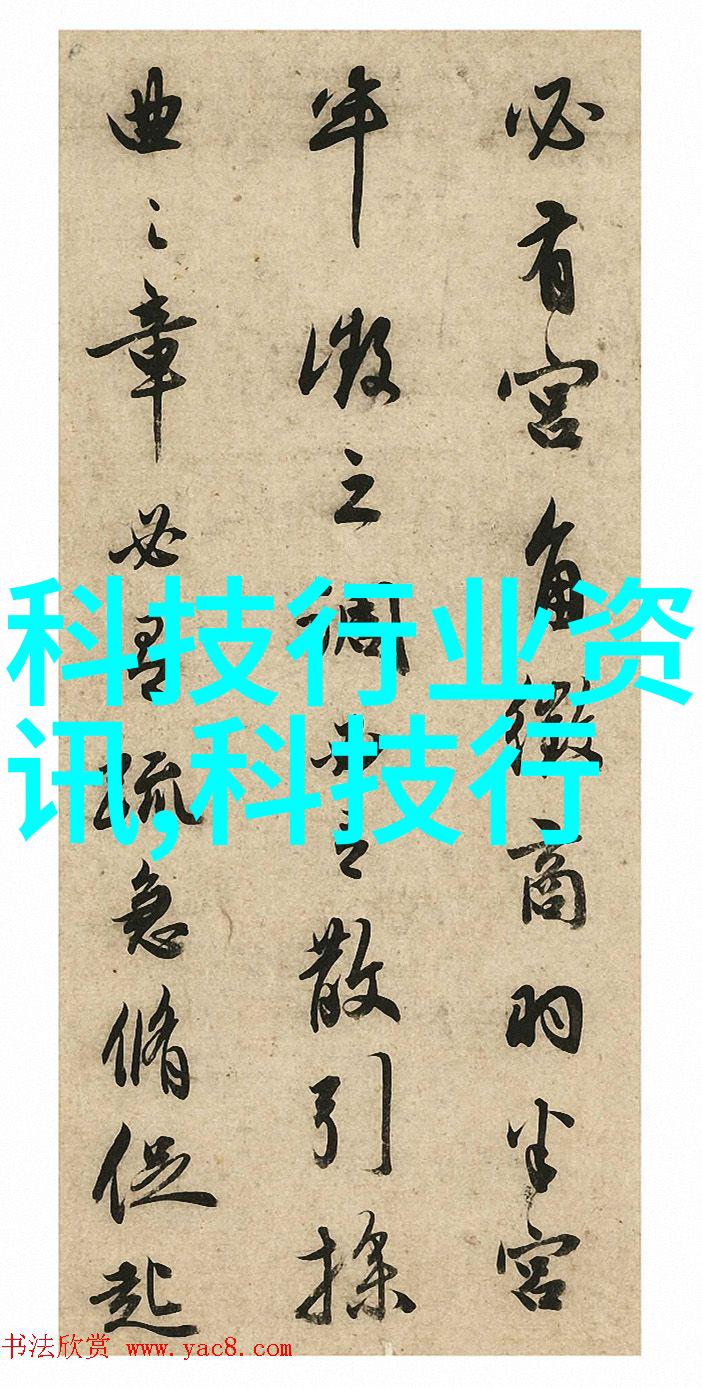 必有宫角徵商羽半宫
半徵之調散引操
曲之章必疏急脩促起
科技行业资
讯,科技行
书法欣赏 www.yac8.com